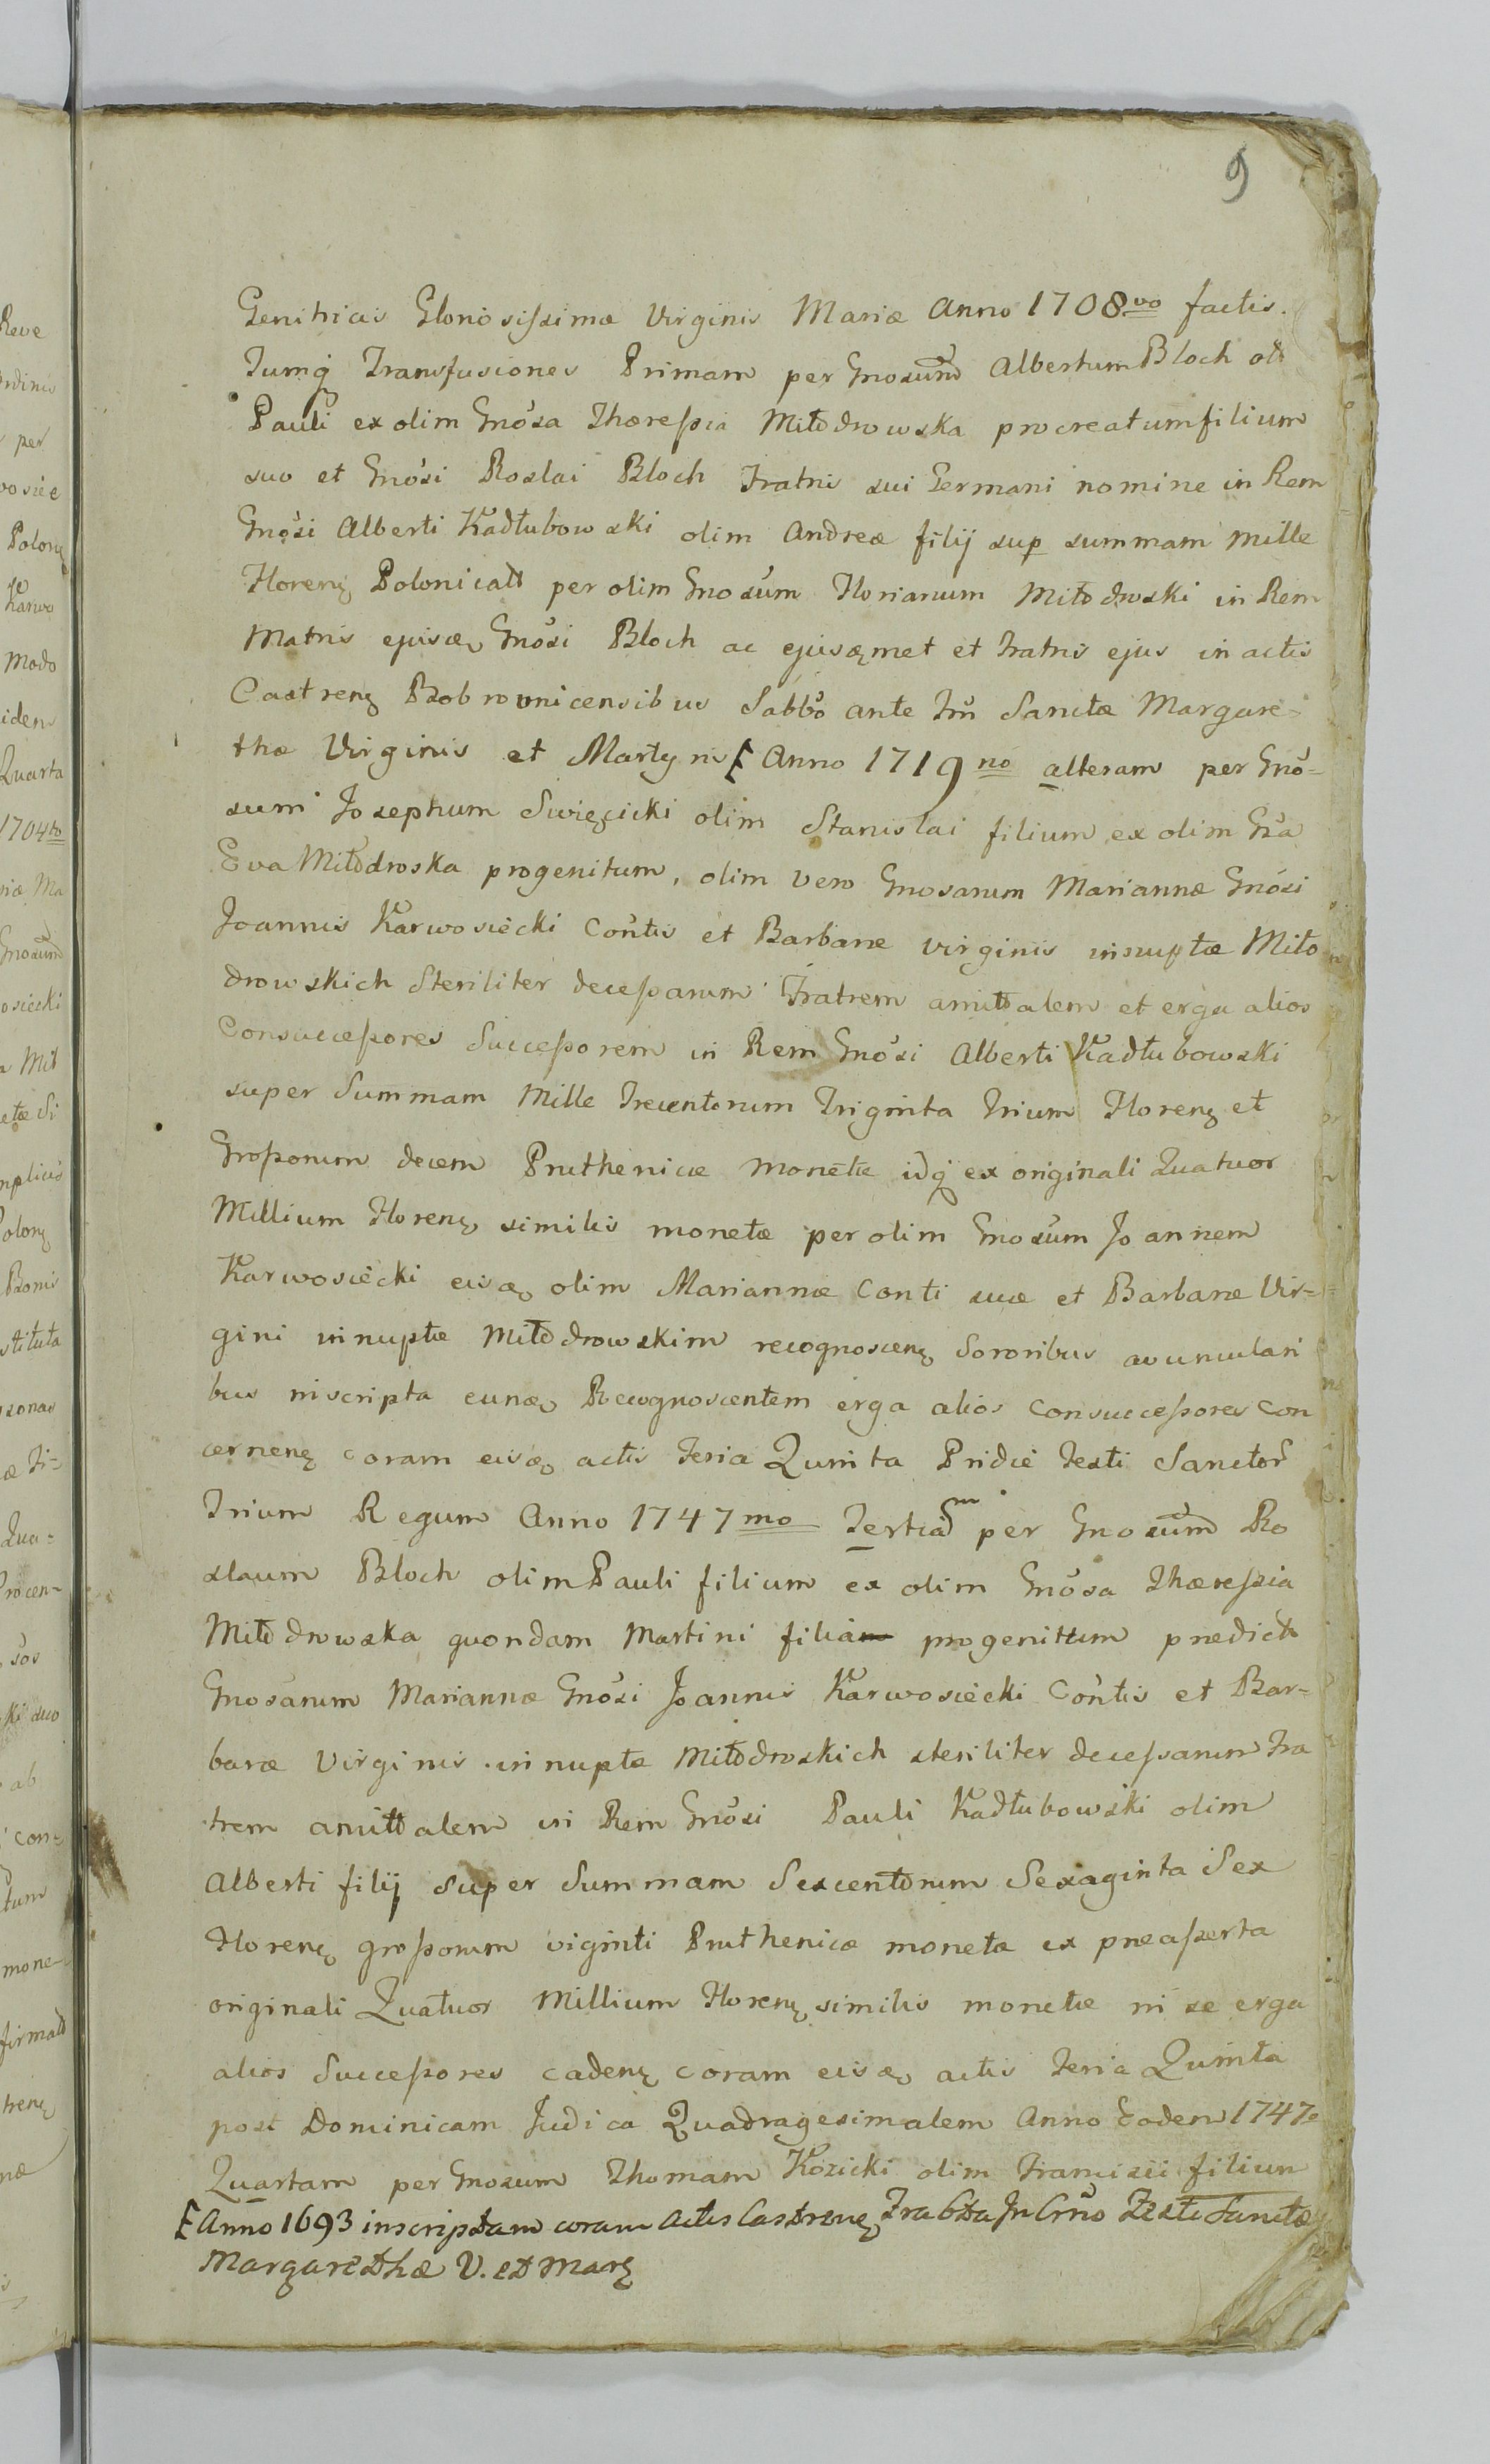 9
Genitricis Gloriosissimæ Virginis Mariæ Anno 1708vo factis.
Tumq Transfusiones Primam per Gnosum Albertum Bloch oli
Pauli ex olim Gnosa Thæressia Miłodrowska procreatum filium
suo et Gnosi Roslai Bloch Fratris sui Germani nomine in Rem
Gnosi Alberti Kadłubowski olim Andreæ filij sup summam Mille
Floren Polonicall per olim Gnosum Florianum Miłodroski in Rem
Matris ejusdem Gnosi Bloch ac ejusdemmet et Fratris ejus in actis
Castren Bobrownicensibus Sabbo ante Fm Sanctæ Margare-
thæ Virginis et Martyris [ Anno 1719no alteram per Gno=
sum Josephum Swięcicki olim Stanislai filium ex olim Gsa
Eva Miłodroska progenitum, olim vero Gnosarum Mariannæ Gnosi
Joannis Karwosiecki Contis et Barbaræ virginis innuptæ Miło
drowskich steriliter decessarum Fratrem amittalem et erga alios
Consuccessores Successorem in Rem Gnosi Alberti Kadłubowski
super Summam Mille Trecentorum Triginta Trium Floren et
Grossorum decem Pruthenicæ Monetæ idq ex originali Quatuor
Millium Floren similis monetæ per olim Gnosum Joannem
Karwosiecki eisdem olim Mariannæ Conti suæ et Barbaræ Vir=
gini innuptæ Miłodrowskim recognoscen Sororibus avuncuları
bus inscripta eundem Recognoscentem erga alios consuccessores con
cernen coram eisdem actis Feria Quinta Pridie Festi Sanctor
Trium Regum Anno 1747mo Tertiam per Gnosum Ro
slaum Bloch olim Pauli filium ex olim Gnosa Thæressia
Miłodrowska quondam Martini filia progenittum prædict
Gnosarum Mariannæ Gnosi Joannis Karwosiecki Contis et Bar=
baræ Virginis innuptæ Miłodroskich steriliter decessarum Fra
trem amittalem in Rem Gnosi Pauli Kadłubowski olim
Alberti filij super Summam Sexcentorum Sexaginta Sex
Floren grossorum viginti Pruthenicæ monetæ ex præasserta
originali Quatuor Millium Floren similis monetæ in se erga
alios Successores caden coram eisdem actis Feria Quinta
post Dominicam Judica Quadragesimalem Anno Eodem 1747o
Quartam per Gnosum Thomam Kozicki olim Francisci filium
[ Anno 1693 inscriptam coram Actis Castren Sabbda In Crno Festi Sanctæ
Margarethæ V. et Mar